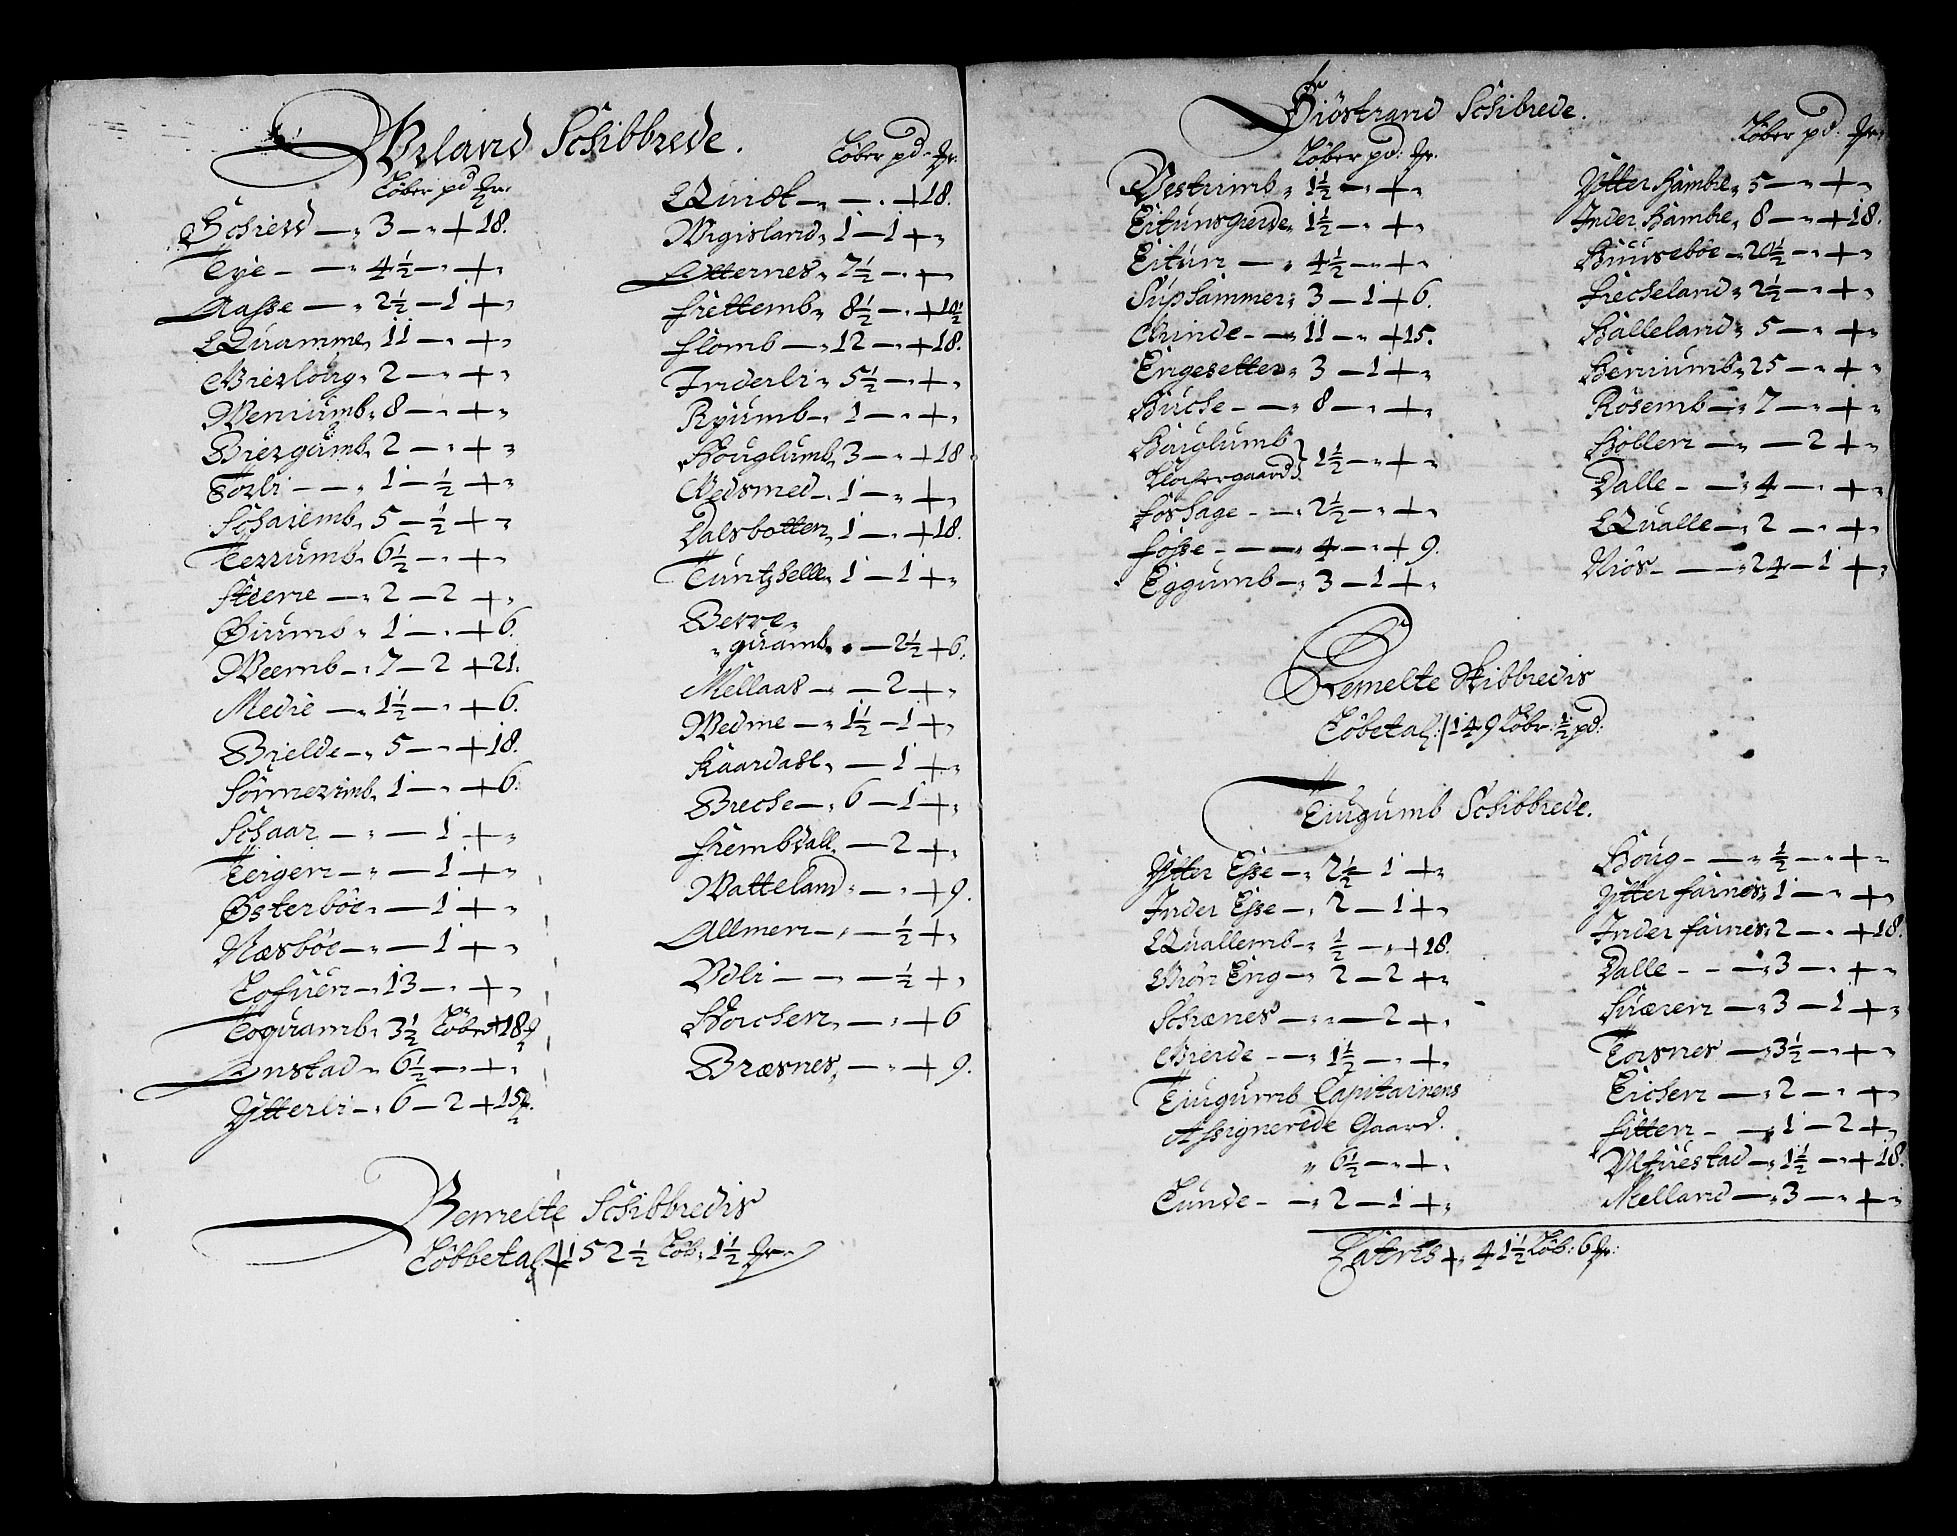 Urland Schibbrede.
Løber pd fr:
Schierd — „ 3 — „ + 18.
Tye — — „ 4½ — „ + „
Aasse — „ 2½ — 1 + „
Quamme „ 11 — „ + „
Bierlöug „ 2 — „ + „
Weniumb „ 8 — „ + „
Biergumb „ 2 — „ + „
Torli — — „ 1 — ½ + „
Schaiemb „ 5 — ½ + „
Terrumb „ 6½ — „ + „
Steene — „ 2 — 2 + „
Øiumb „ 1 — „ + 6.
Weemb — „ 7 — 2 + 21.
Medie — „ 1½ — „ + 6.
Bielde — „ 5 — „ + 18.
Sönnerimb „ 1 — „ + 6.
Schaar — „ — 1 + „
Teigen — „ — 1 + „
Østerböe „ — 1 + „
Næsböe — „ — 1 + „
Lofuen — „ 13 — „ + „
Loguamb „ 3½ Löb + 18 9/2
Onstad „ 6½ — „ + „
Ytterli — „ 6 — 2 + 15
Løber pd. fr.
Quidt — „ — „ + 18.
Wigisland „ 1 — 1 + „
Otternes „ 7½ — „ + „
Frettemb „ 8½ — „ + 10½
Flomb — „ 12 — „ + 18.
Inderli „ 5½ — „ + „
Ryumb — „ 1 — „ + „
Houglumb „ 3 — „ + 18
Wedsmed — „ 1 — „ + „
Dalsbotten „ 1 — „ + 18.
Tuntzhelle „ 1 — 1 + „
Berre „
„ guamb „ — 2½ + 6.
Mellaas — „ — 2 + „
Wedme — „ 1½ — 1 + „
Kaardahl „ — 1 + „
Breche — „ 6 — 1 + „
Frembdall „ — 2 + „
Watteland „ — „ + 9.
Allmen — „ — ½ + „
Udli — — „ — ½ + „
Storchen „ — „ + 6
Bræsnes „ — „ + 9.
Bemelte Schibbredis
Löbbetal: 152½ Löb: 1½ fr.
Siöstrand Schibrede.
Løber pd: fr.
Vestumb „ 1½ — „ + „
Eitunsgierde „ 1½ — „ + „
Eitun — „ 4½ — „ + „
Suphammer „ 3 — 1 + 6.
Grinde — — 11 — „ + 15.
Engesetter „ 3 — 1 + „
Huche — — 8 — „ + „
Houglumb
Klochergaard } 1½ — „ + „
Foshage — — „ 2½ — „ + „
Fosse — — — „ 4 — „ + 9.
Eggumb — „ 3 — 1 + „
Løber pd: fr.
Ytter Hambre „ 5 — „ + „
Inder Hambre „ 8 — „ + 18.
Huuseböe „ 20½ — „ + „
Frecheland „ 2½ — „ + „
Halleland „ 5 — „ + „
Heniumb „ 25 — „ + „
Rösemb — „ 7 — „ + „
Höllen — „ — 2 + „
Dalle — — „ 4 — „ + „
Qualle — „ 2 — „ + „
Niös — — — „ 24 — 1 + „
Bemelte Skibbredis
Löbetal: 149 Löbr: ½ pd:
Tiugumb Schibbrede.
Ytter Esse — „ 2½ 1 + „
Inder Esse — „ 2 — 1 + „
Quallemb — „ ½ — „ + 18.
Grön Eng — „ 2 — 2 + „
Schænes — „ — 2 + „
Gierde — — „ 1½ — „ + „
Tiugumb Capitainens
Assignerede Gaard.
„ 6½ — „ + „
Lunde — — „ 2 — 1 + „
Houg — — „ ½ — „ + „
Ytter fairnes „ 1 — „ + „
Inder fairnes „ 2 — „ + 18.
Dalle — — „ 3 — „ + „
Suæren — „ 3 — 1 + „
Torsnes — „ 3½ — „ + „
Eichen — „ 2 — „ + „
Fitten — — „ 1 — 2 + „
Ulfuestad — „ 1½ — „ + 18.
Melland — „ 3 — „ + „
Lateris + „ 41½ Löb: 6 fr: